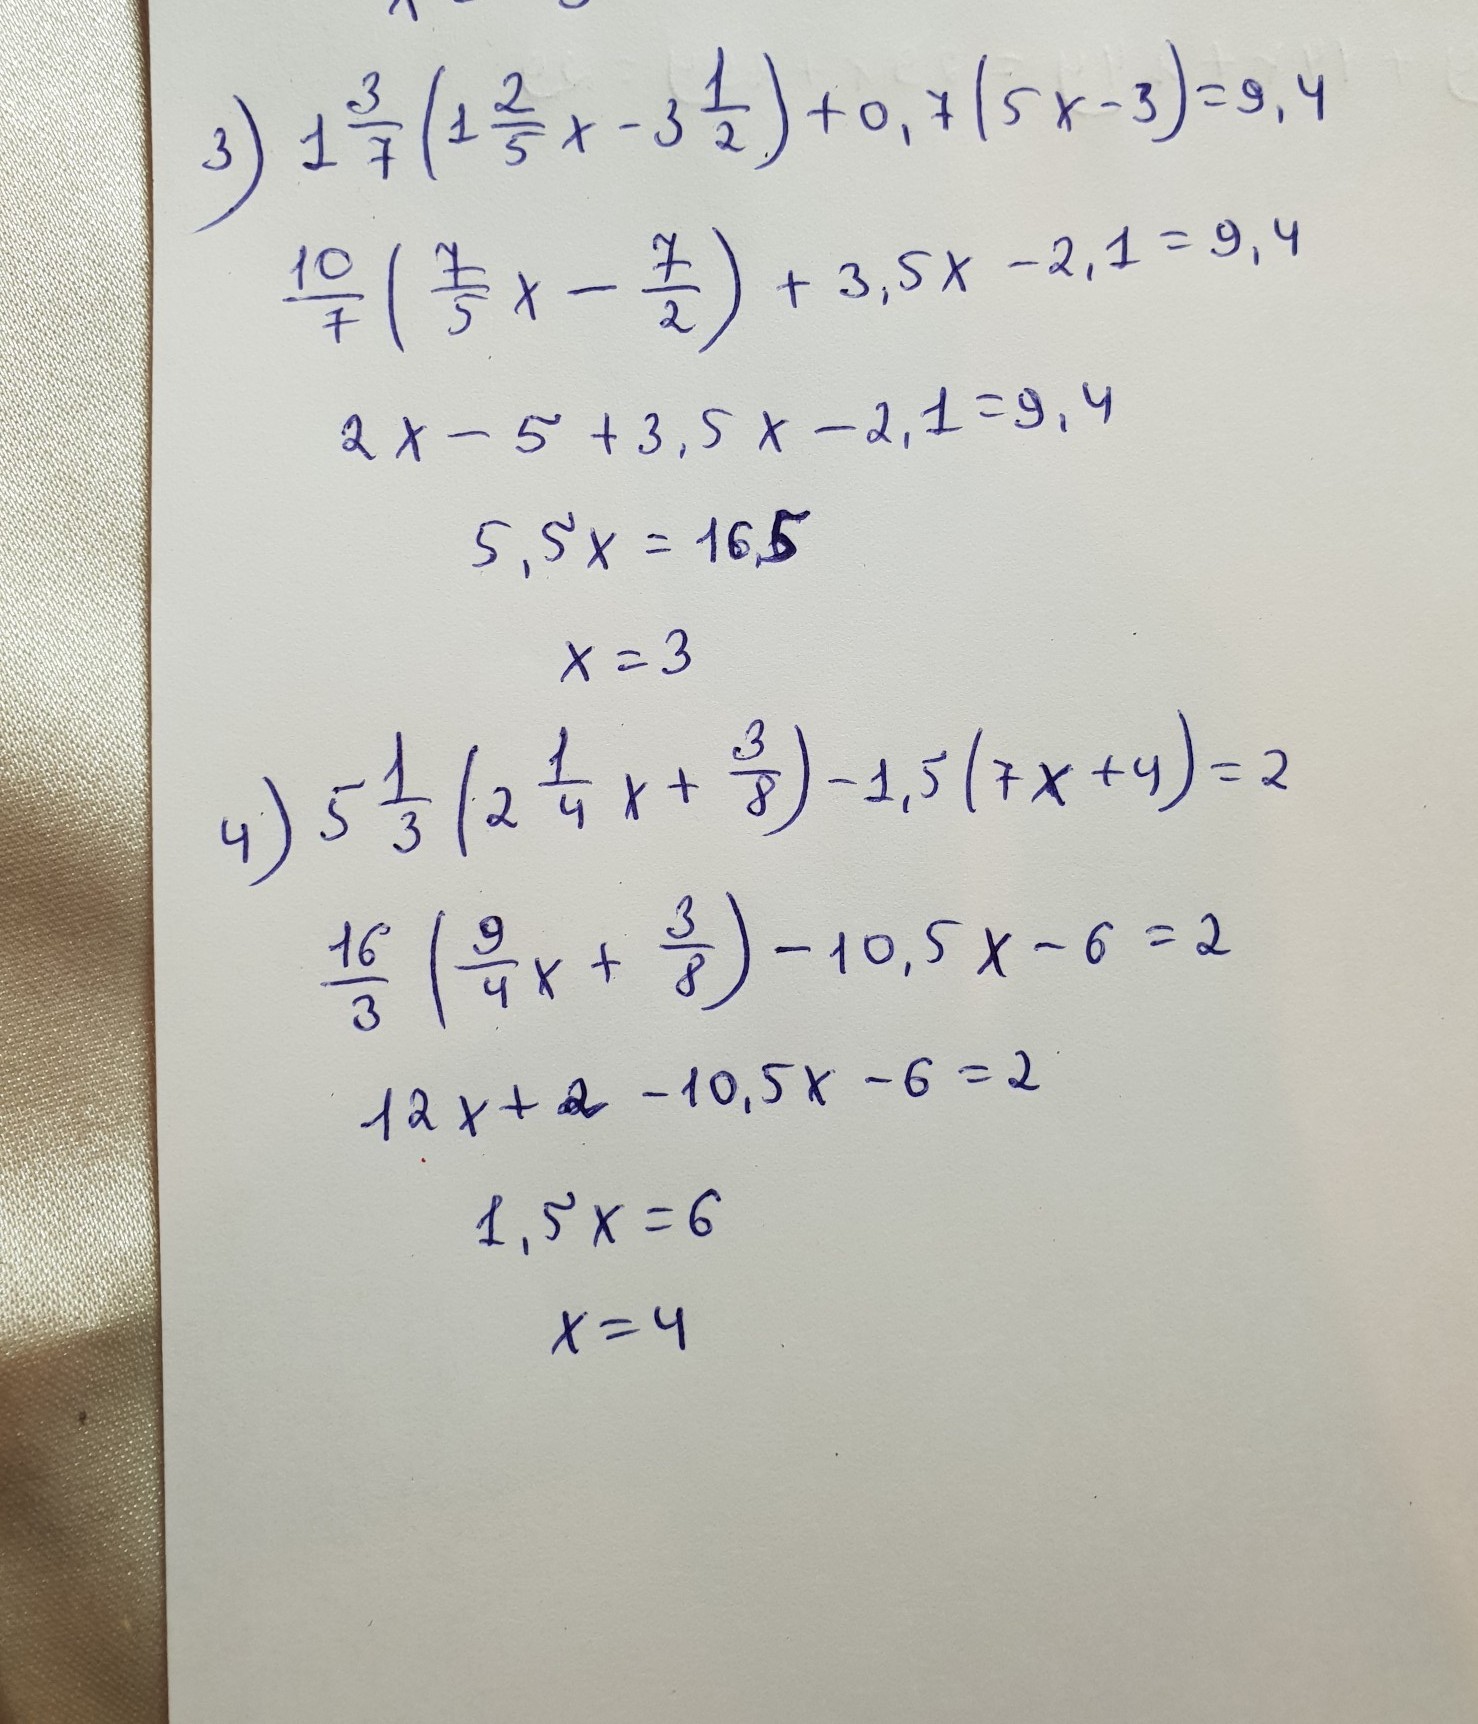 3) 1 3/7 (1 2/5 x - 3 1/2) + 0,7(5x - 3) = 9,4
10/7 (7/5 x - 7/2) + 3,5x - 2,1 = 9,4
2x - 5 + 3,5x - 2,1 = 9,4
5,5x = 16,5
x = 3
4) 5 1/3 (2 1/4 x + 3/8) - 1,5(7x + 4) = 2
16/3 (9/4 x + 3/8) - 10,5x - 6 = 2
12x + 2 - 10,5x - 6 = 2
1,5x = 6
x = 4